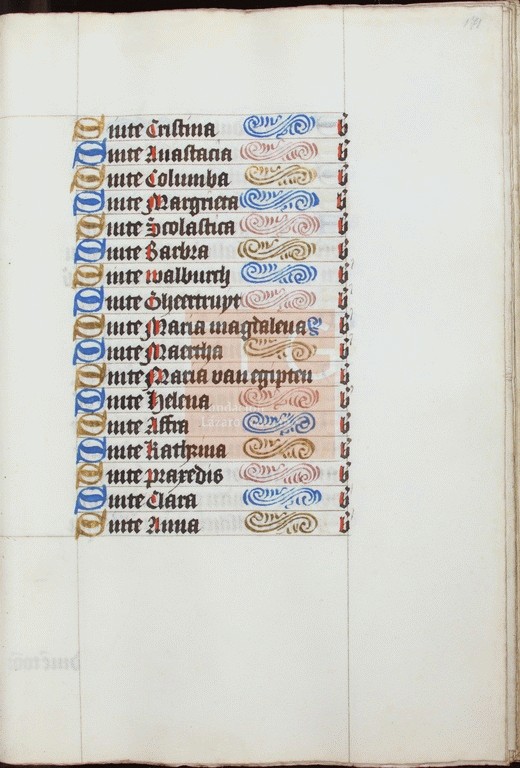 Sinte Cristina b
Sinte Anastacia b
Sinte Columba b
Sinte Margrieta b
Sinte Scolastica b
Sinte Barbra b
Sinte walburch b
Sinte Gheertruyt b
Sinte Maria magdalena b
Sinte Maertha b
Sinte Maria van egipten b
Sinte Helena b
Sinte Affra b
Sinte Kathrina b
Sinte praxedis b
Sinte Clara b
Sinte Anna b